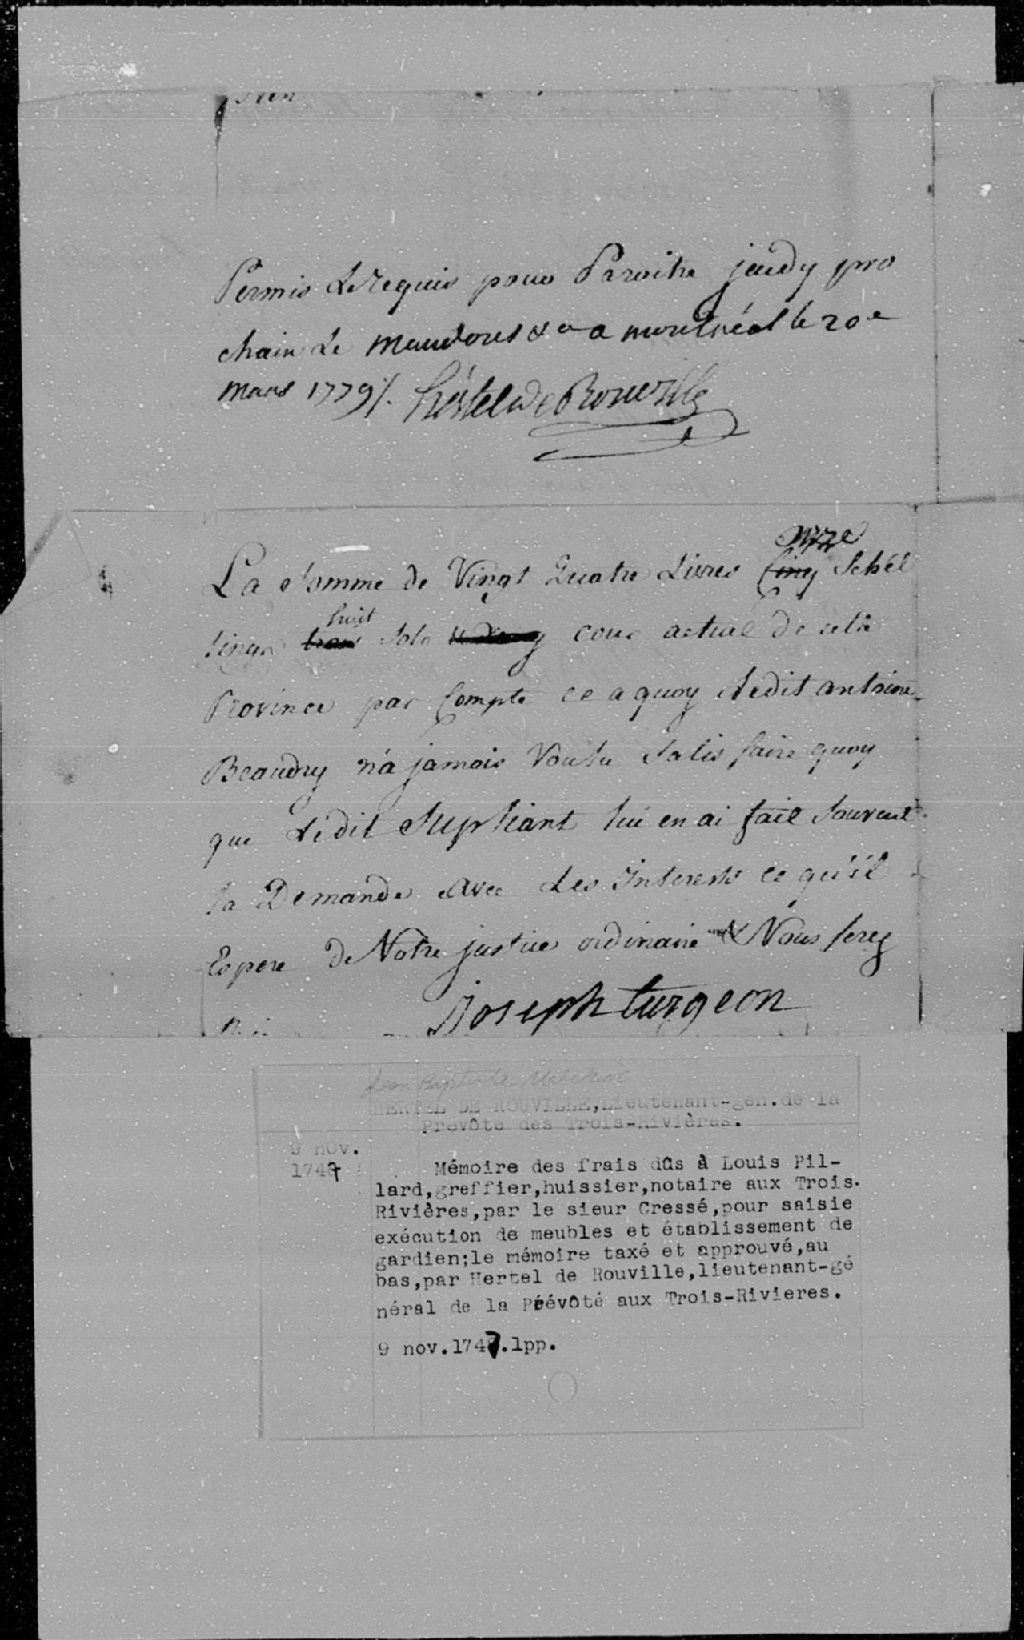 Permis Le requis pour Paroitre jeudy pro
chain Le Mandons &a a montréal le 20e
Mars 1779/. hértel de Rouville
onze
La Somme de Vingt Quatre Livres Cinq Schel
huit
lings trois Sols cour actuel de cette
Province par Compte ce a quoy Ledit antoine
Beaudry n'a jamais Voulu Satis faire quoy
que Ledit Supliant lui en ai fait Souvent
la Demande Avec Les Interests ce qu'il
Espere de Notre justice ordinaire & Nous ferez
Joseph turgeon
Jean Baptiste Melchior
HERTEL DE ROUVILLE,Lieutenant-gén.de la
Prévôté des Trois-Rivières.
9 nov.
1747
Mémoire des frais dûs à Louis Pil-
lard,greffier,huissier,notaire aux Trois-
Rivières,par le sieur Cressé,pour saisie
exécution de meubles et établissement de
gardien;le mémoire taxé et approuvé,au
bas,par Hertel de Rouville,lieutenant-gé
néral de la Prévôté aux Trois-Rivieres.
9 nov.1747.1pp.